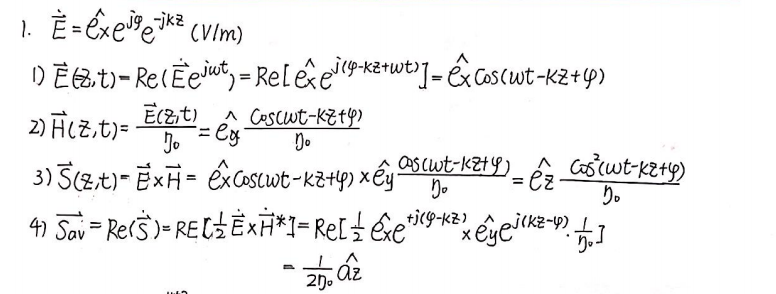 1. Ė⃗ = êₓ e^{jφ} e^{-jkz} (V/m)
1) E⃗(z,t) = Re(Ė⃗ e^{jωt}) = Re[êₓ e^{j(φ-kz+ωt)}] = êₓ cos(ωt-kz+φ)
2) H⃗(z,t) = E⃗(z,t)/η₀ = ê_y cos(ωt-kz+φ)/η₀
3) S⃗(z,t) = E⃗×H⃗ = êₓ cos(ωt-kz+φ) × ê_y cos(ωt-kz+φ)/η₀ = ê_z cos²(ωt-kz+φ)/η₀
4) S⃗av = Re(Ṡ⃗) = RE[½ Ė⃗×Ḣ⃗*] = Re[½ êₓ e^{+j(φ-kz)} × ê_y e^{j(kz-φ)} · 1/η₀]
= 1/(2η₀) â_z